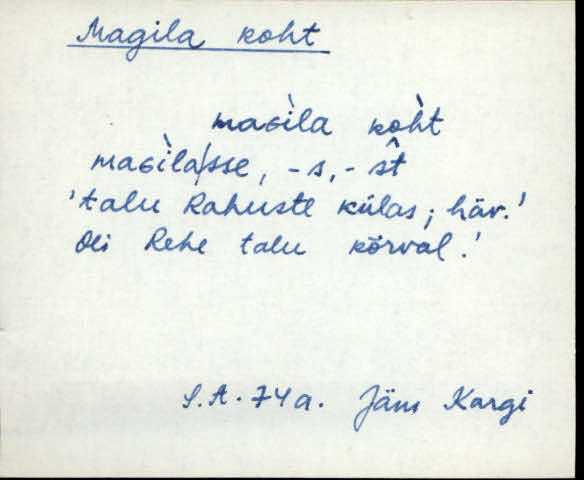 Magila koht
maɢìla kòht
maɢìla/sse, -s, -st̂
'talu Rahuste külas; häv.'
Oli Rehe talu kõrval.'
S.A. 74 a. Jäm Kargi